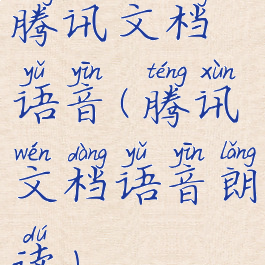 腾讯文档
yǔ yīn téng xùn
语音(腾讯
wén dàng yǔ yīn lǎng
文档语音朗
dú
读)